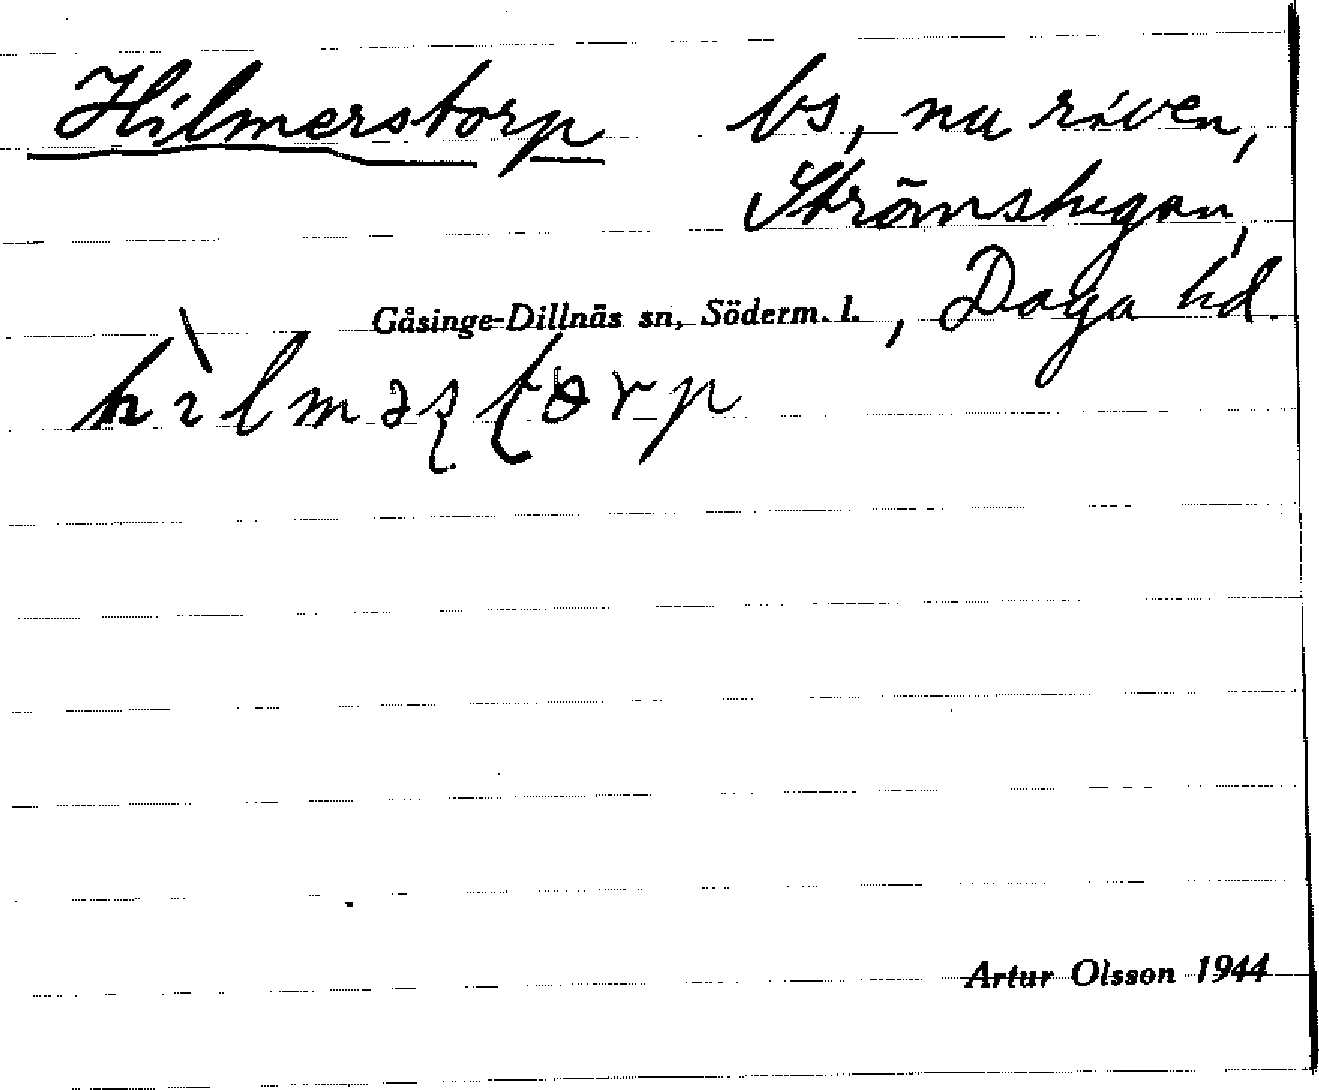 Hilmerstorp bs, nu riven,
Strömstugan,
Gåsinge-Dillnäs sn, Söderm. l., Daga hd.
Artur Olsson 1944